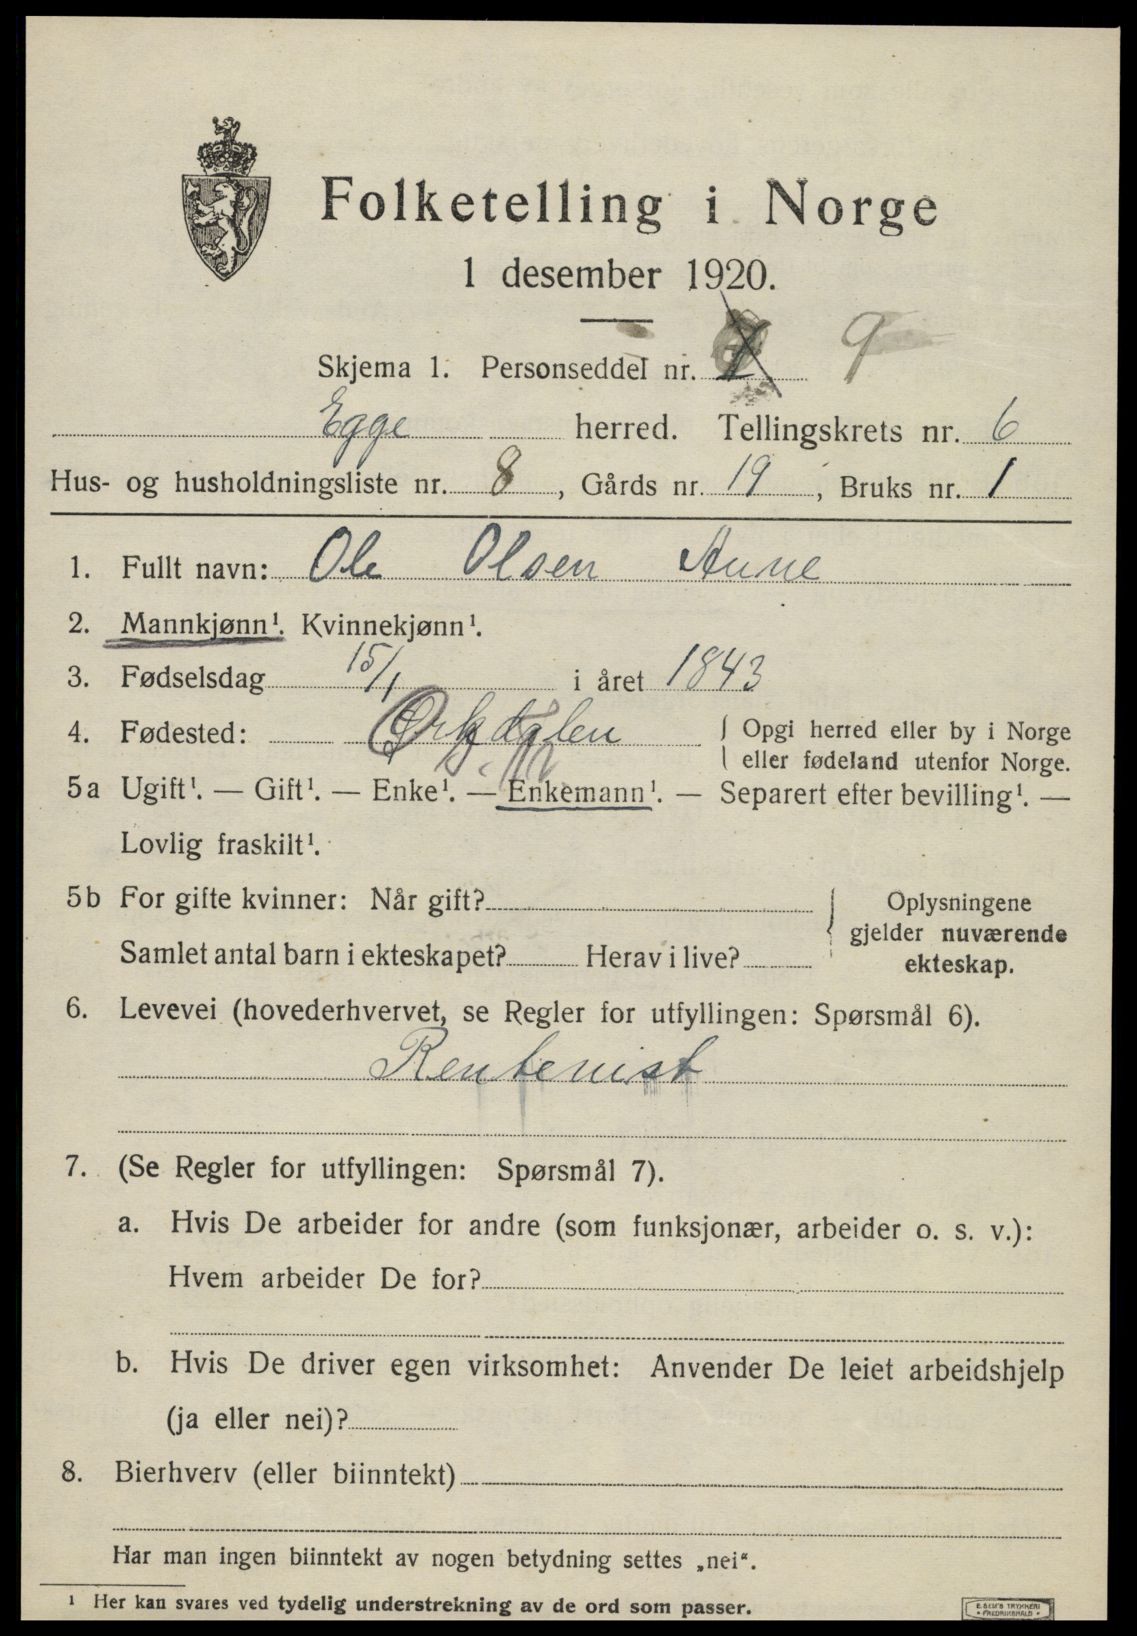 Folketelling i Norge
1 desember 1920.
Skjema 1. Personseddel nr. 9
Egge herred. Tellingskrets nr. 6
Hus- og husholdningsliste nr. 8, Gårds nr. 19, Bruks nr. 1
1. Fullt navn: Ole Olsen Aune
2. Mannkjønn¹. Kvinnekjønn¹.
3. Fødselsdag 15/1 i året 1843
4. Fødested: Ørkdalen { Opgi herred eller by i Norge
eller fødeland utenfor Norge.
5a Ugift¹. — Gift¹. — Enke¹. — Enkemann¹. — Separert efter bevilling¹. —
Lovlig fraskilt¹.
5b For gifte kvinner: Når gift?
Samlet antal barn i ekteskapet? Herav i live?
{ Oplysningene
gjelder nuværende
ekteskap.
6. Levevei (hovederhvervet, se Regler for utfyllingen: Spørsmål 6).
Rentenist
7. (Se Regler for utfyllingen: Spørsmål 7).
a. Hvis De arbeider for andre (som funksjonær, arbeider o. s. v.):
Hvem arbeider De for?
b. Hvis De driver egen virksomhet: Anvender De leiet arbeidshjelp
(ja eller nei)?
8. Bierhverv (eller biinntekt)
Har man ingen biinntekt av nogen betydning settes „nei“.
¹ Her kan svares ved tydelig understrekning av de ord som passer.
E. SEM'S TRYKKERI
• FREDRIKSHALD •